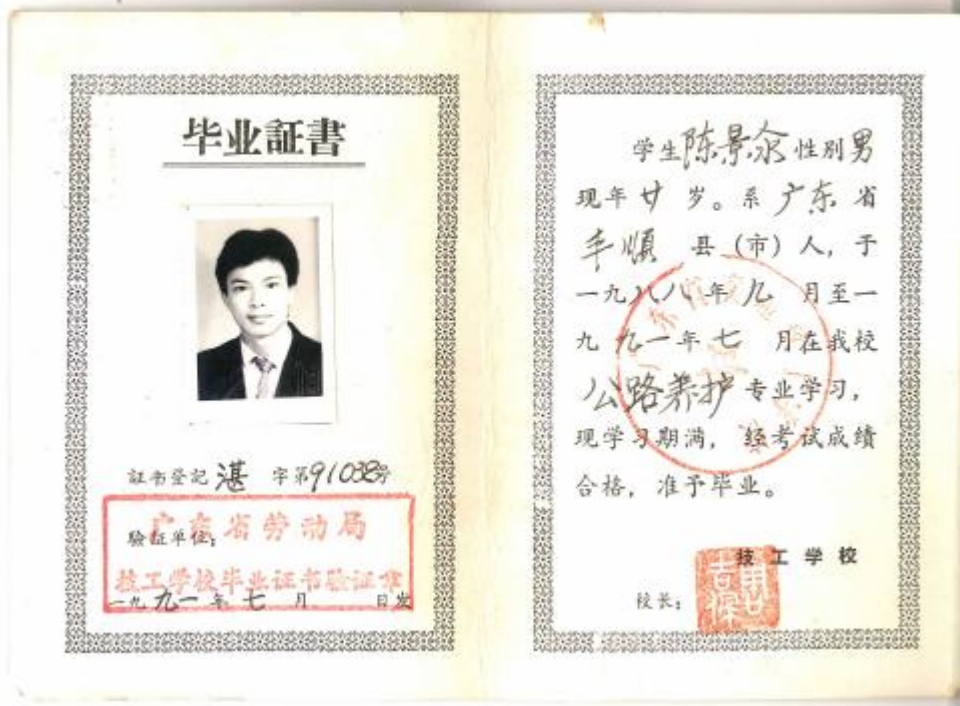 毕业証書
証书登記 湛 字第91038号
广东省劳动局
驗証单位:
技工学校毕业证书验证章
一九九一年七月 日发
学生陈景汆性别男
现年廿岁。系广东省
丰顺县(市)人,于
一九八八年九月至一
九九一年七月在我校
公路养护专业学习,
现学习期满,经考试成绩
合格,准予毕业。
技工学校
校长: